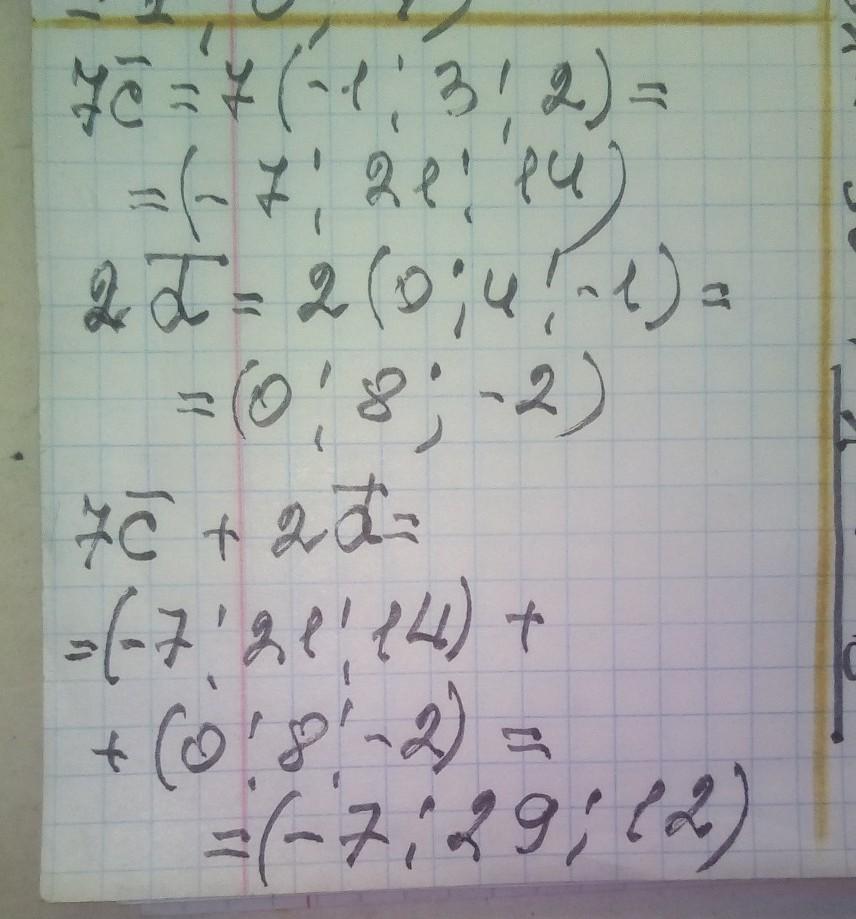 7c̄ = 7(-1; 3; 2) =
= (-7; 21; 14)
2d̄ = 2(0; 4; -1) =
= (0; 8; -2)
7c̄ + 2d̄ =
= (-7; 21; 14) +
+ (0; 8; -2) =
= (-7; 29; 12)